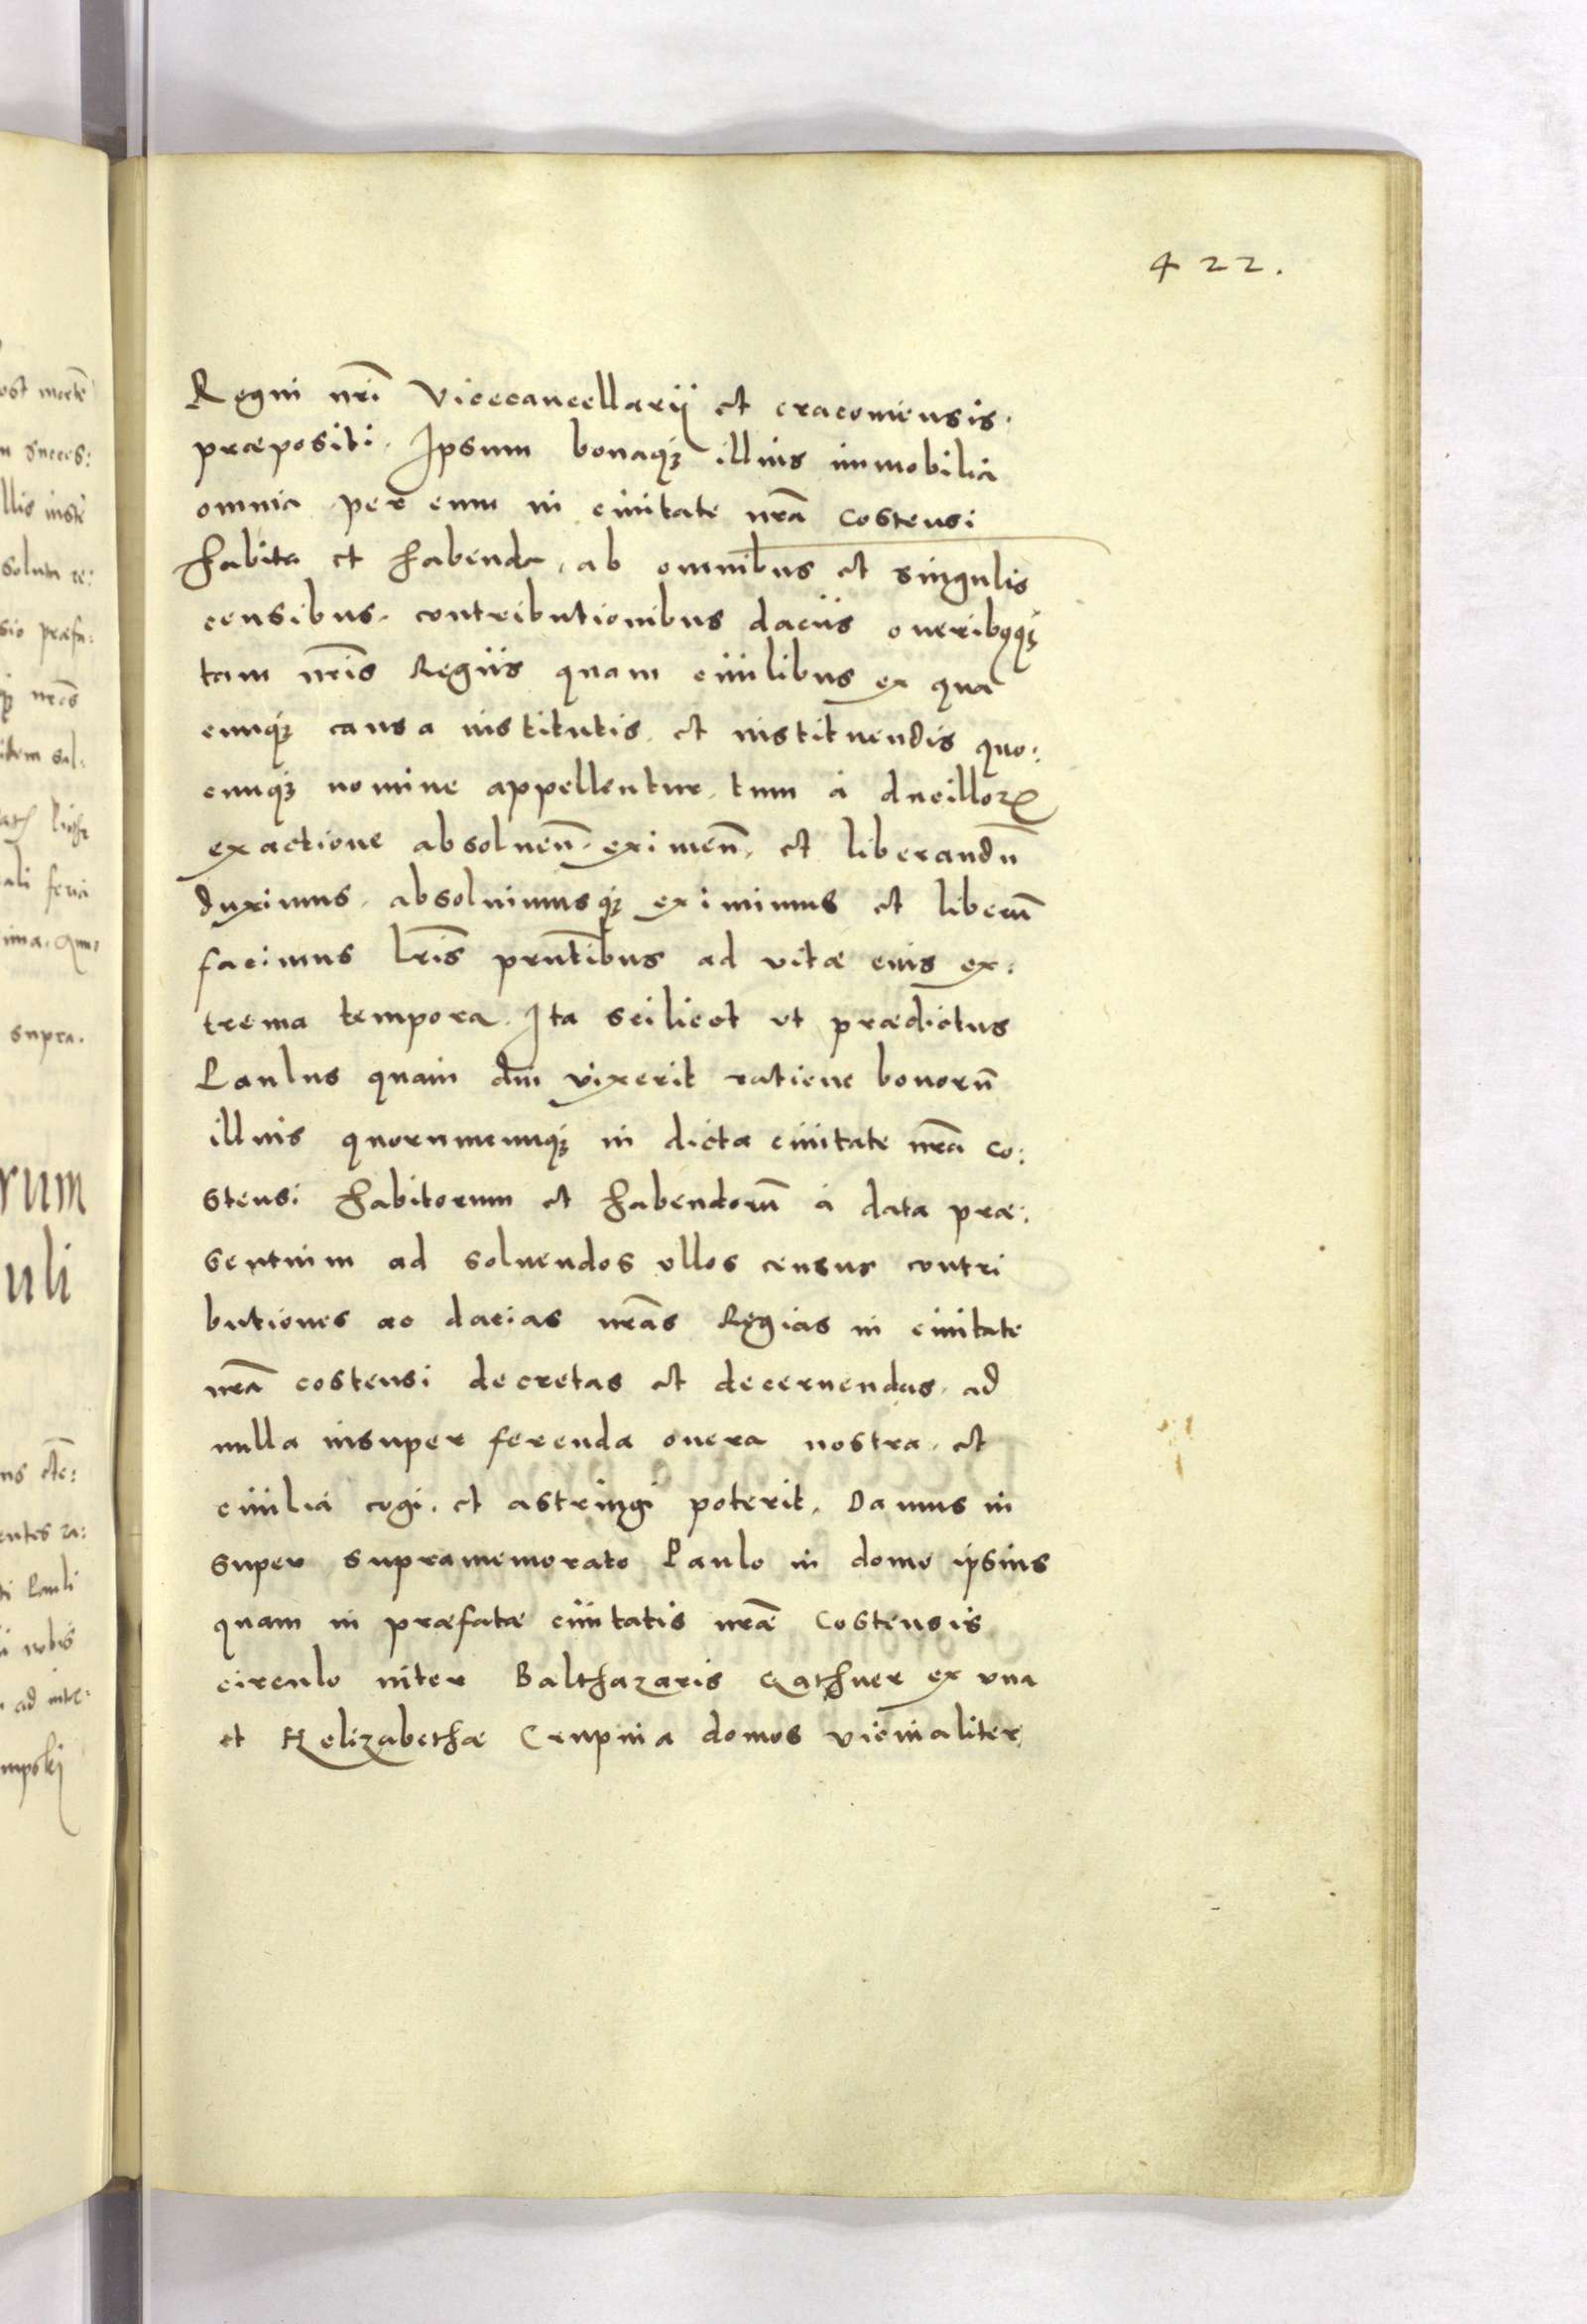 422.
Regni nr̄i Vicecancellarij et cracouieńsis.
præpositi. Ipsum bonaqꝫ illius immobilia
omnia per eum in ciuitate nr̄a Costensi
habita et habenda, ab omnibus et singulis
censibus. contributionibus daciis oneribꝰqꝫ
tam nr̄is Regiis quam ciuilibus ex qua
cunqꝫ causa institutis. et instituendis quo:
cunqꝫ nomine appellentur. tum à ducilloꝝ
exactione absoluen̄. eximen̄. et liberandū
duximus. absoluimusqꝫ eximimus et liberū
facimus lr̄is prn̄tibus ad vitæ eius ex:
trema tempora. Ita scilicet vt prædictus
Paulus quam diu vixerit ratione bonorū
illius quorumcunqꝫ in dicta ciuitate nr̄a Co:
stensi habitorum et habendorū à data præ:
sentium ad soluendos vllos census contri
butiones ac dacias nr̄as Regias in ciuitate
nr̄a costensi decretas et decernendas. ad
nulla insuper ferenda onera nostra. et
ciuilia cogi. et astringi poterit. Damus in
super supramemorato Paulo in domo ipsius
quam in præfatæ ciuitatis nr̄æ Costensis
circulo inter Balthazaris Rathner ex vna
et Helizabethæ Crupina domos vicinaliter
ost mortē
n Succes:
llis inst
solum re:
sio præfa:
qꝫ nr̄os
item sal:
ali feria
ima. Anno
supra.
rum
uli
ns
entes ra:
ti Pauli
i nobis
ad inte:
mpskj